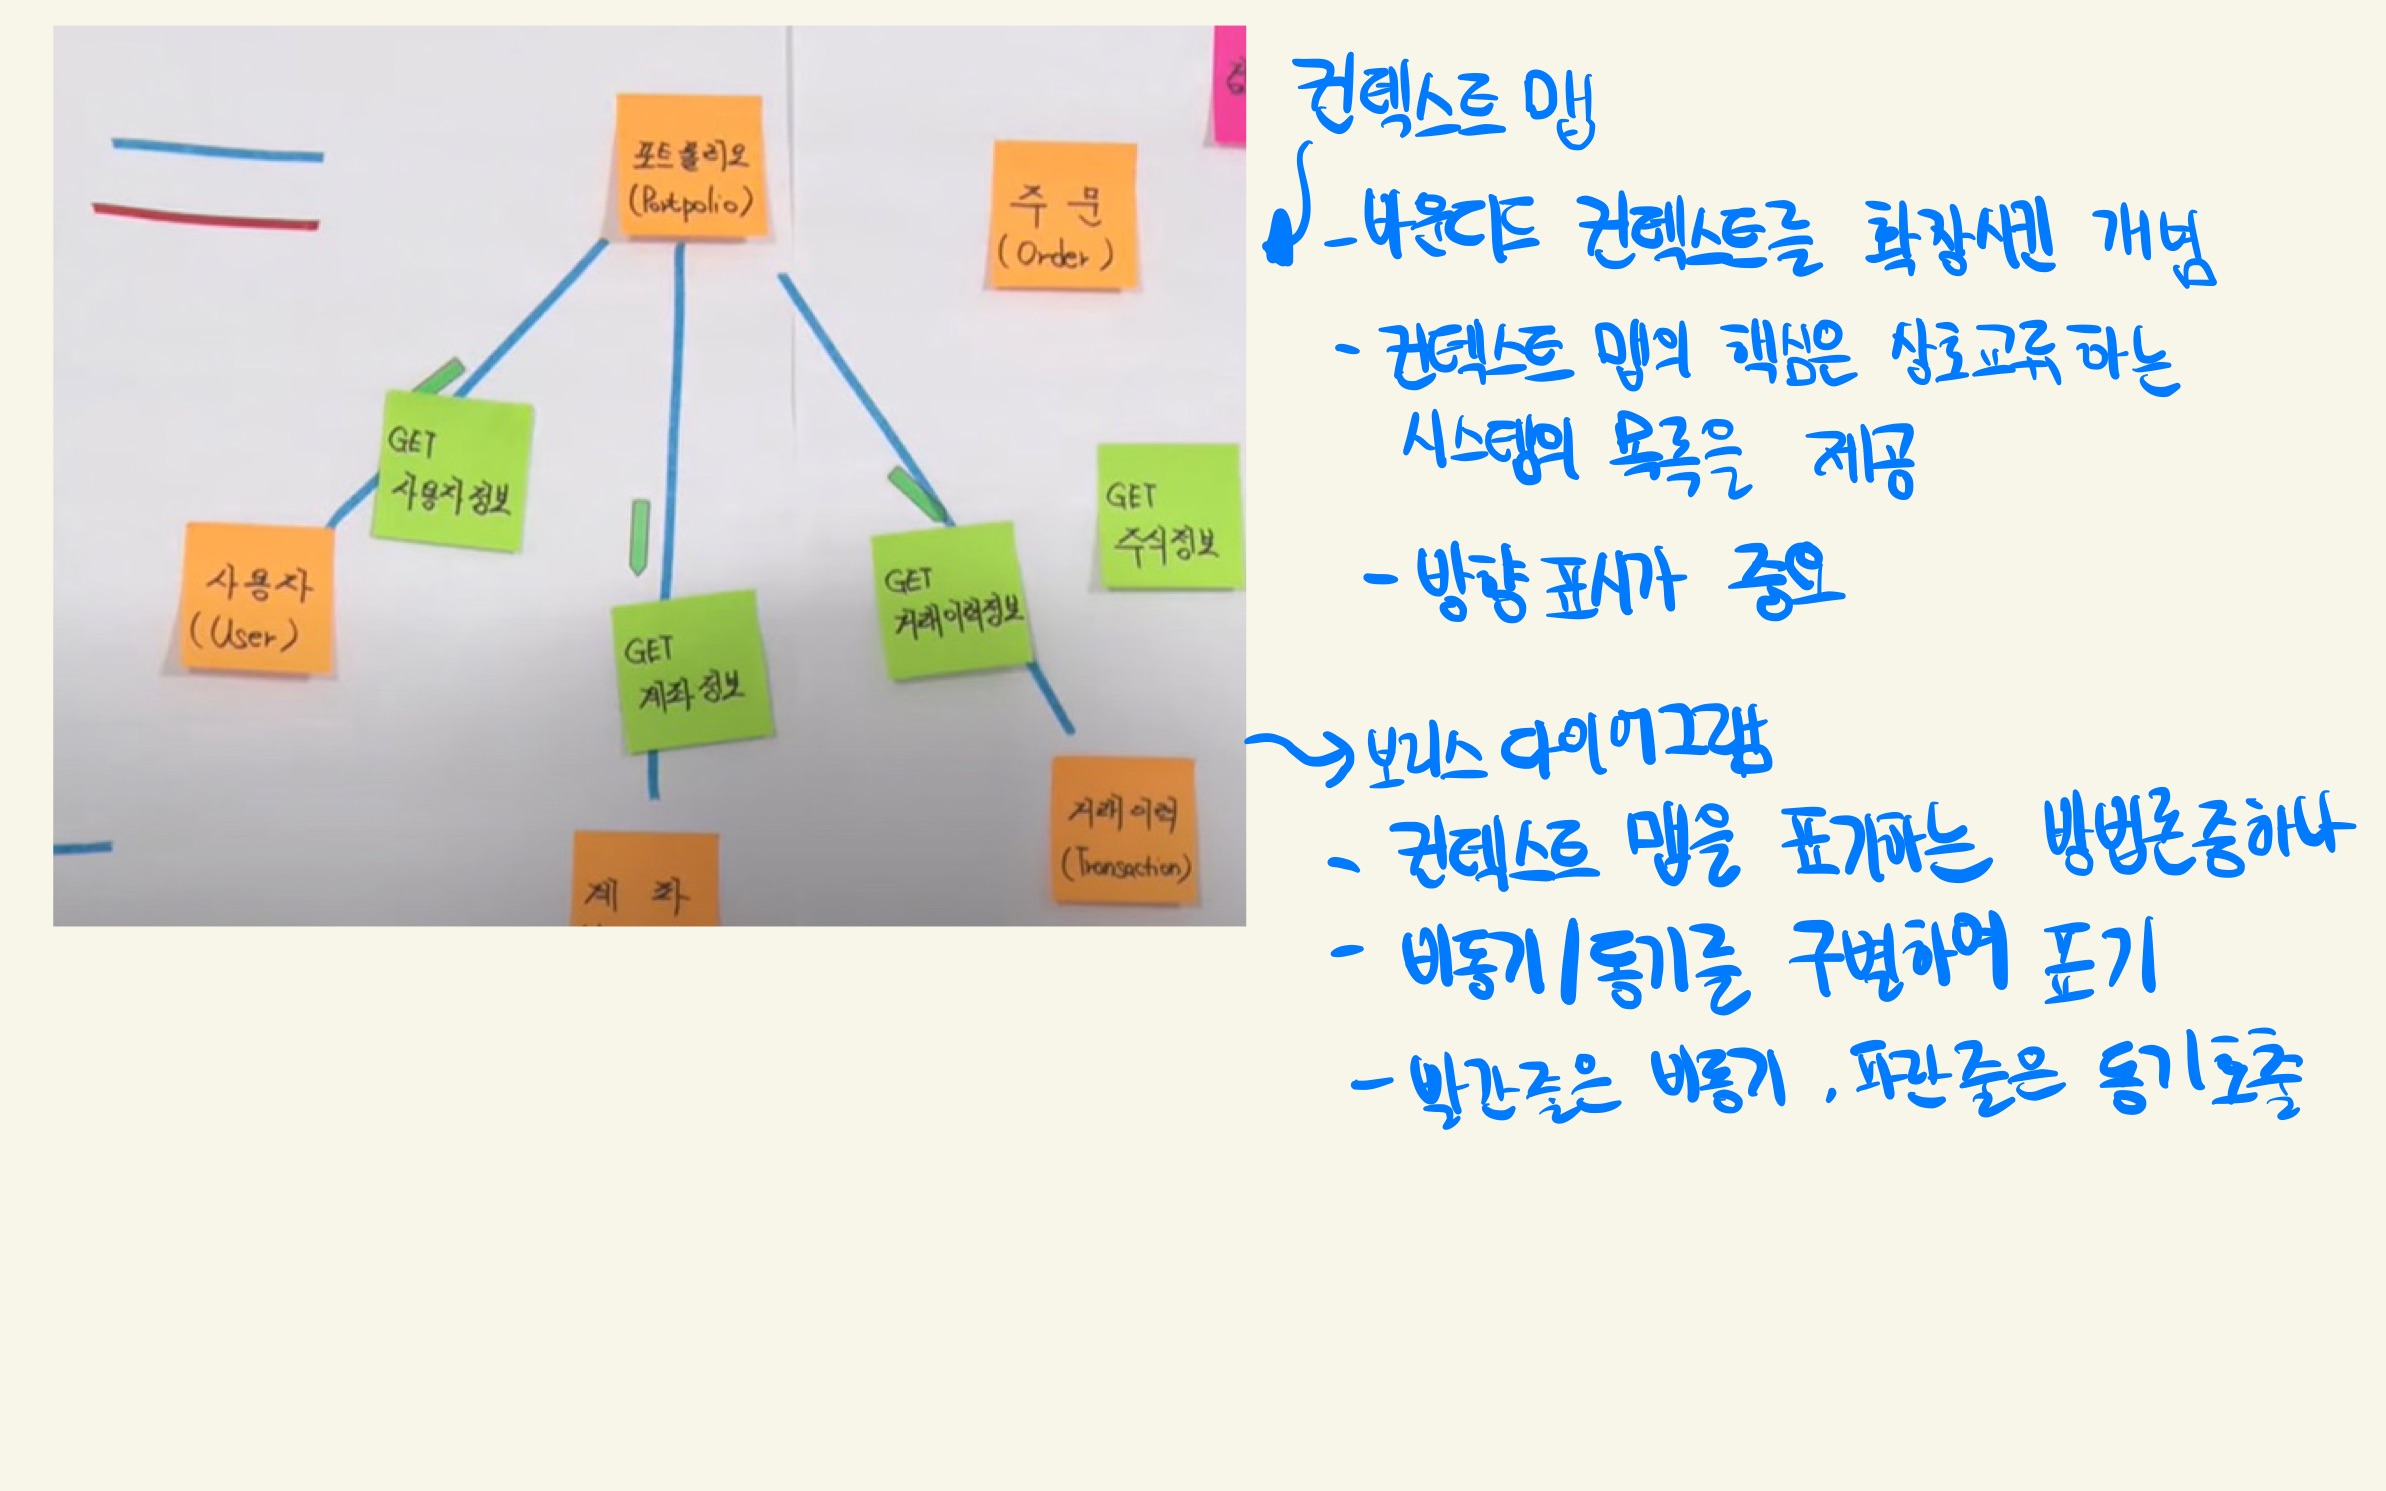 포트폴리오
(Portpolio)
주 문
(Order)
GET
사용자정보
GET
주식정보
사용자
(User)
GET
거래이력정보
GET
계좌정보
거래이력
(Transaction)
계 좌
컨텍스트 맵
- 바운디드 컨텍스트를 확장시킨 개념
- 컨텍스트 맵의 핵심은 상호교류하는
시스템의 목록을 제공
- 방향표시가 중요
→ 보리스 다이어그램
- 컨텍스트 맵을 표기하는 방법론중하나
- 비동기/동기를 구별하여 표기
- 빨간줄은 비동기, 파란줄은 동기호출